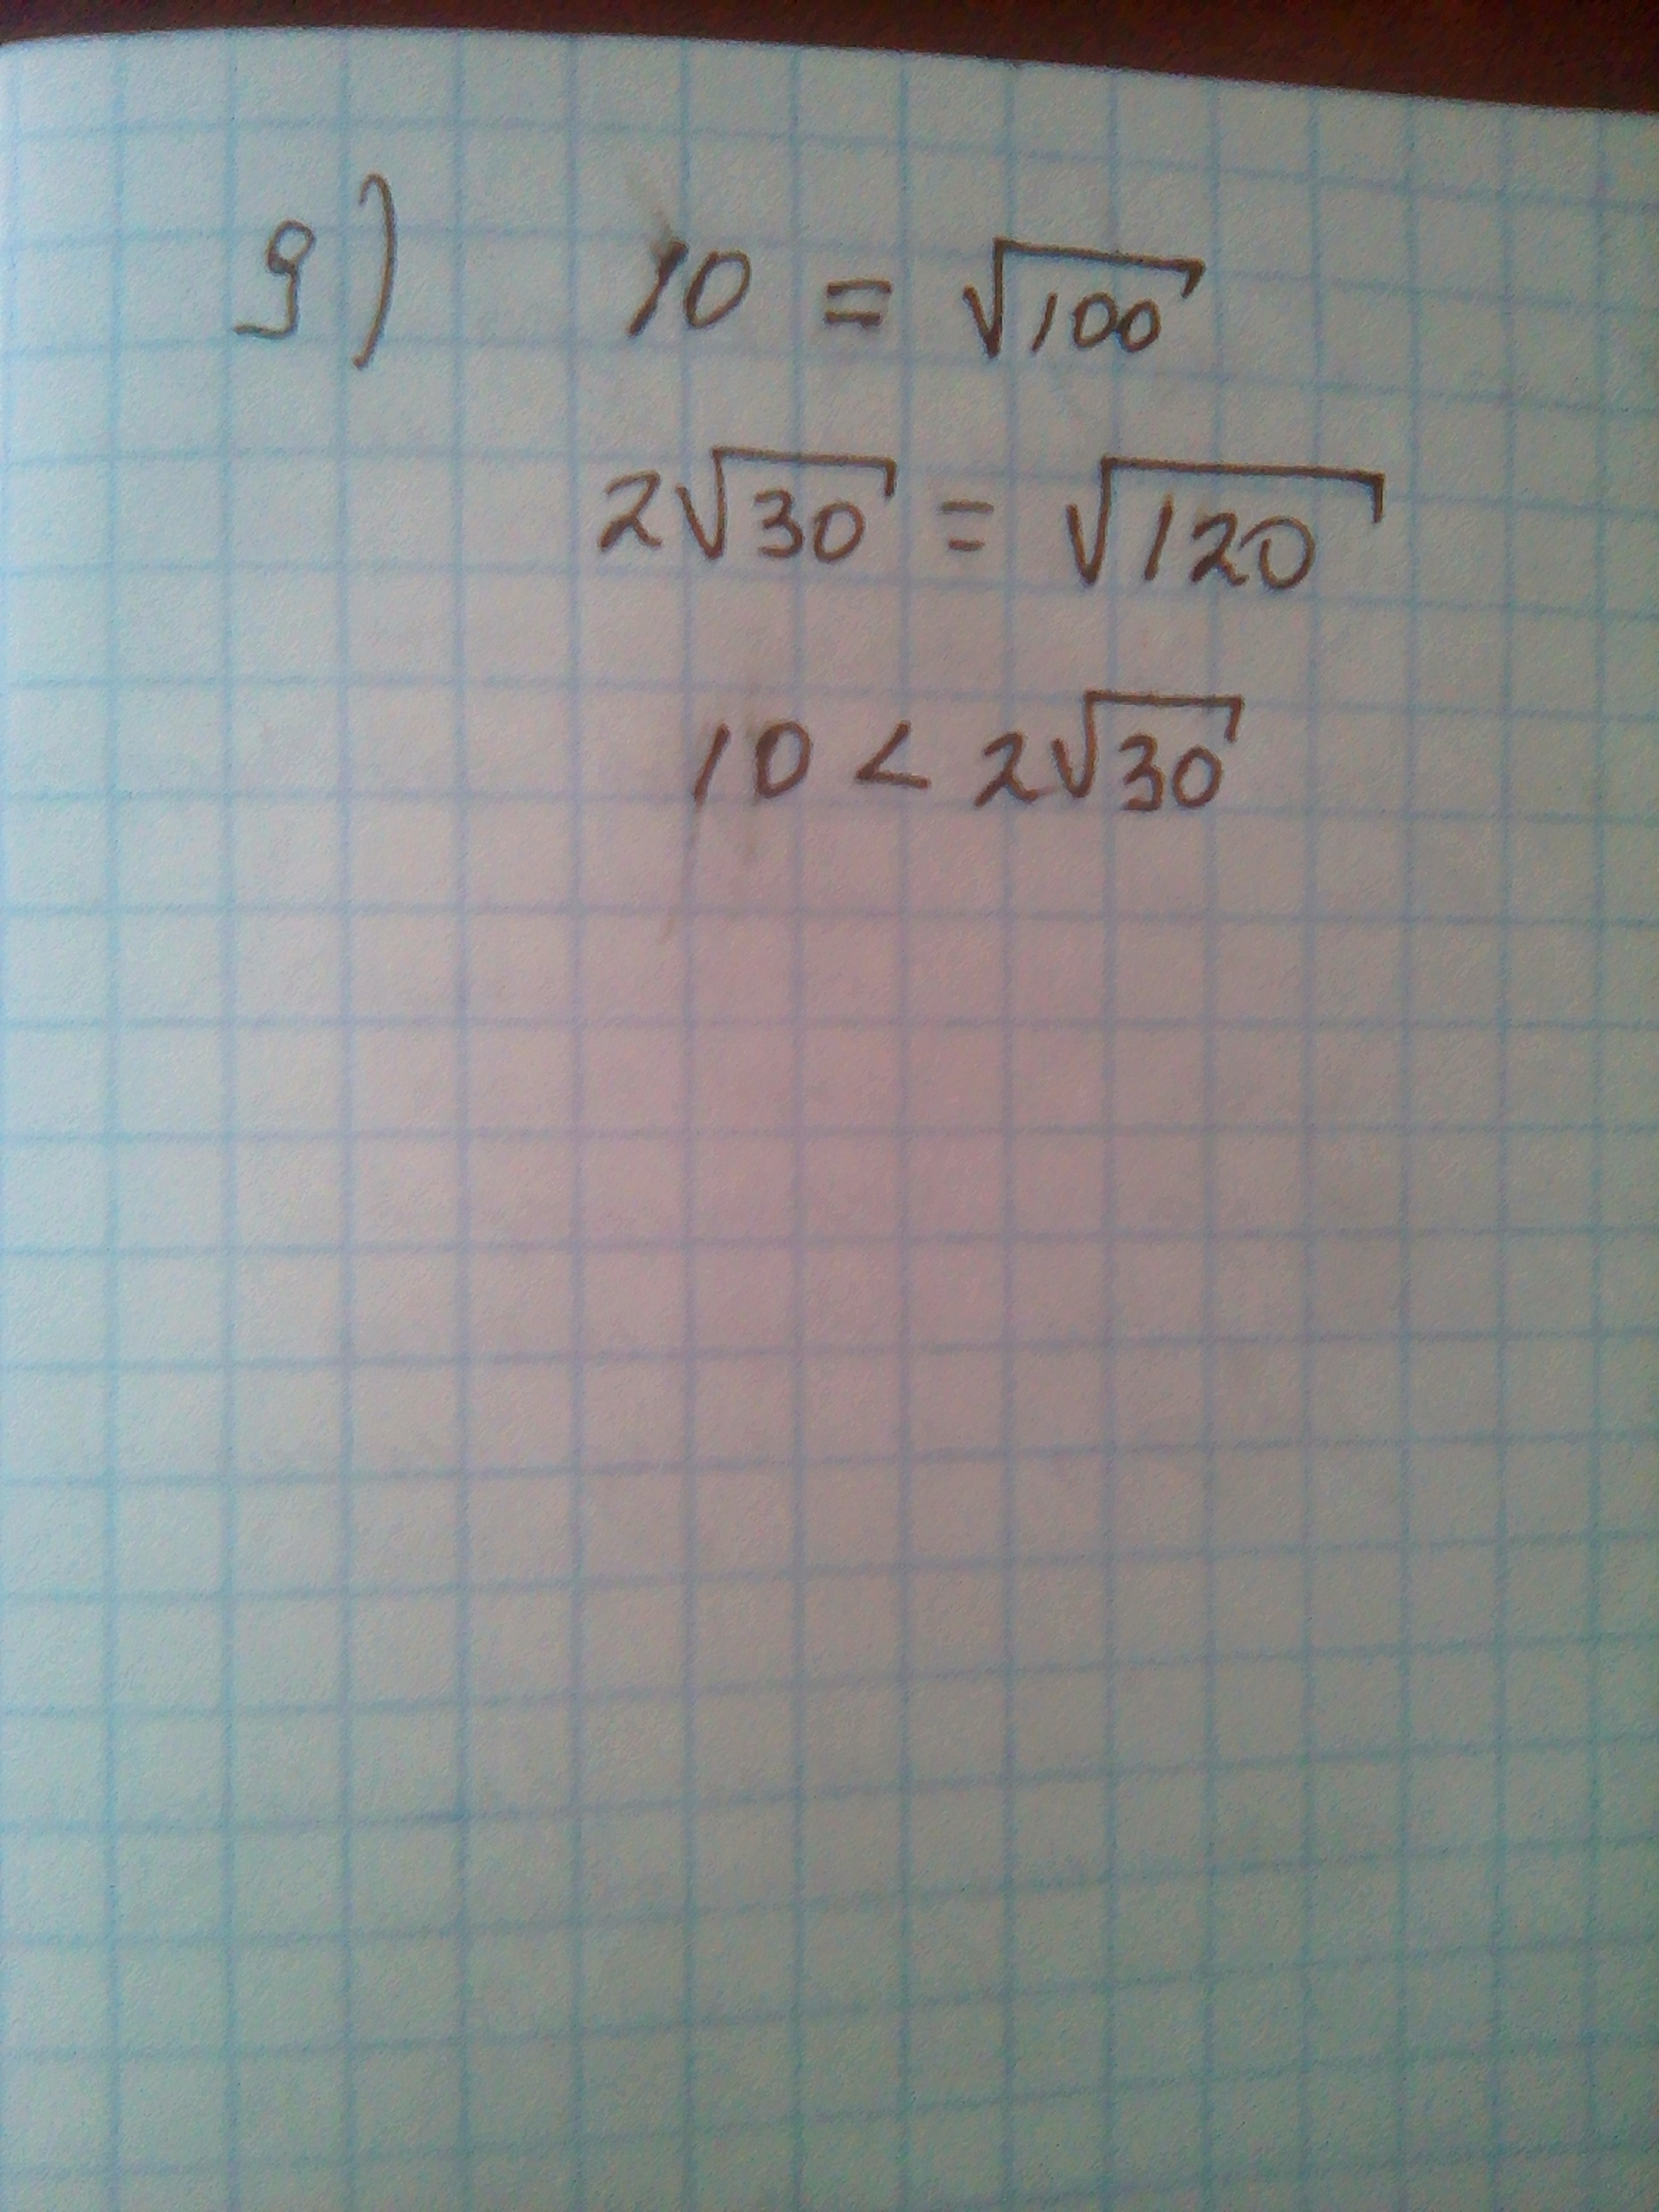 g) 10 = √100
2√30 = √120
10 < 2√30